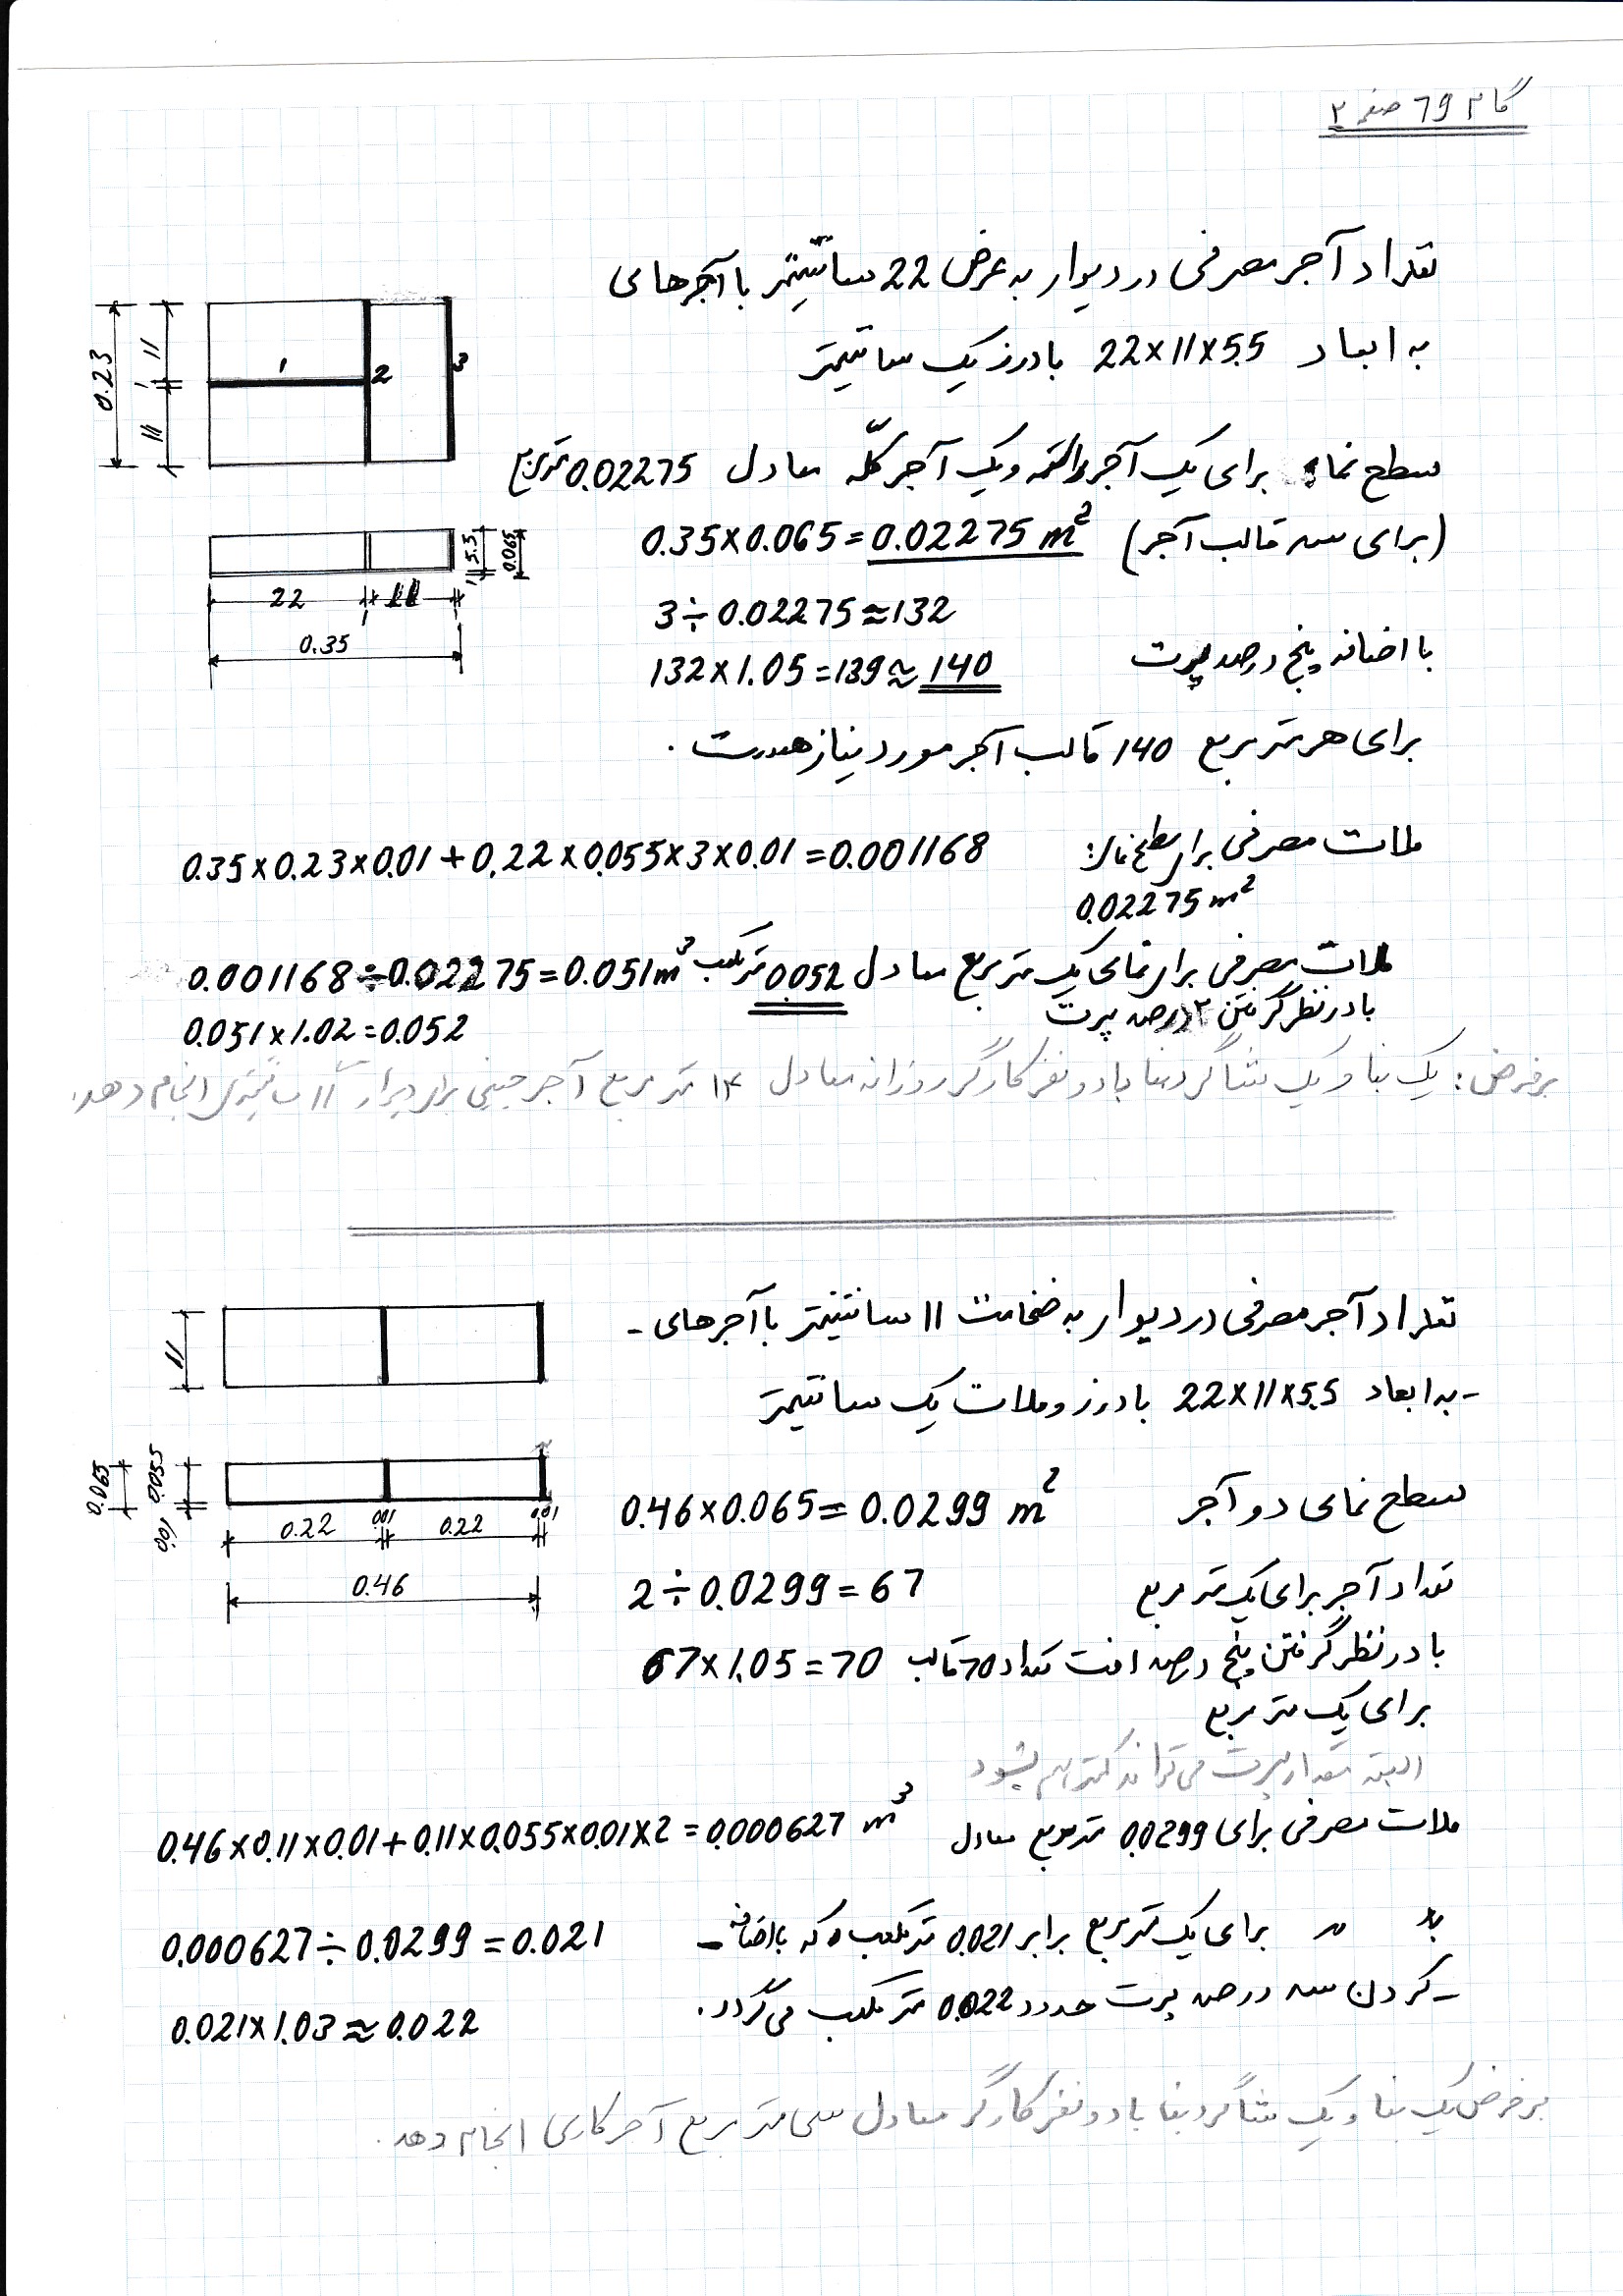 گام 79 صفحه ۲
تعداد آجر مصرفی در دیوار به عرض 22 سانتیمتر با آجرهای
به ابعاد 22×11×5.5 با درز یک سانتیمتر
0.23
11
1
11
1
2
3
سطح نما برای یک آجر راسته و یک آجر کلّه معادل 0.02275 مترمربع
(برای سه قالب آجر) 0.35×0.065=0.02275 m²
22
1
11
0.35
1
5.5
0.065
3÷0.02275≈132
با اضافه پنج درصد پرت 132×1.05=139≈140
برای هر متر مربع 140 قالب آجر مورد نیاز هست.
ملات مصرفی برای سطح نما: 0.35×0.23×0.01+0.22×0.055×3×0.01=0.001168
0.02275 m²
ملات مصرفی برای نمای یک متر مربع معادل 0.052 متر مکعب 0.001168÷0.02275=0.051m³
با در نظر گرفتن ۲ درصد پرت 0.051×1.02=0.052
بر فرض: یک بنا و یک شاگرد بنا با دو نفر کارگر روزانه معادل ۱۴ متر مربع آجر چینی برای دیوار سانتیمتری انجام دهد.
تعداد آجر مصرفی در دیوار به ضخامت 11 سانتیمتر با آجرهای -
- به ابعاد 22×11×5.5 با درز و ملات یک سانتیمتر
11
0.065
0.055
0.01
0.22
0.01
0.22
0.01
0.46
سطح نمای دو آجر 0.46×0.065=0.0299 m²
تعداد آجر برای یک متر مربع 2÷0.0299=67
با در نظر گرفتن پنج درصد افت تعداد 70 قالب 67×1.05=70
برای یک متر مربع
البته مقدار پرت می تواند کمتر هم بشود
ملات مصرفی برای 0.0299 متر مربع معادل 0.46×0.11×0.01+0.11×0.055×0.01×2=0.000627 m³
〃 〃 برای یک متر مربع برابر 0.021 متر مکعب که با اضافه - 0.000627÷0.0299=0.021
- کردن سه درصد پرت حدود 0.022 متر مکعب می گردد. 0.021×1.03≈0.022
بر فرض یک بنا و یک شاگرد بنا با دو نفر کارگر معادل سی متر مربع آجر کاری انجام دهد.